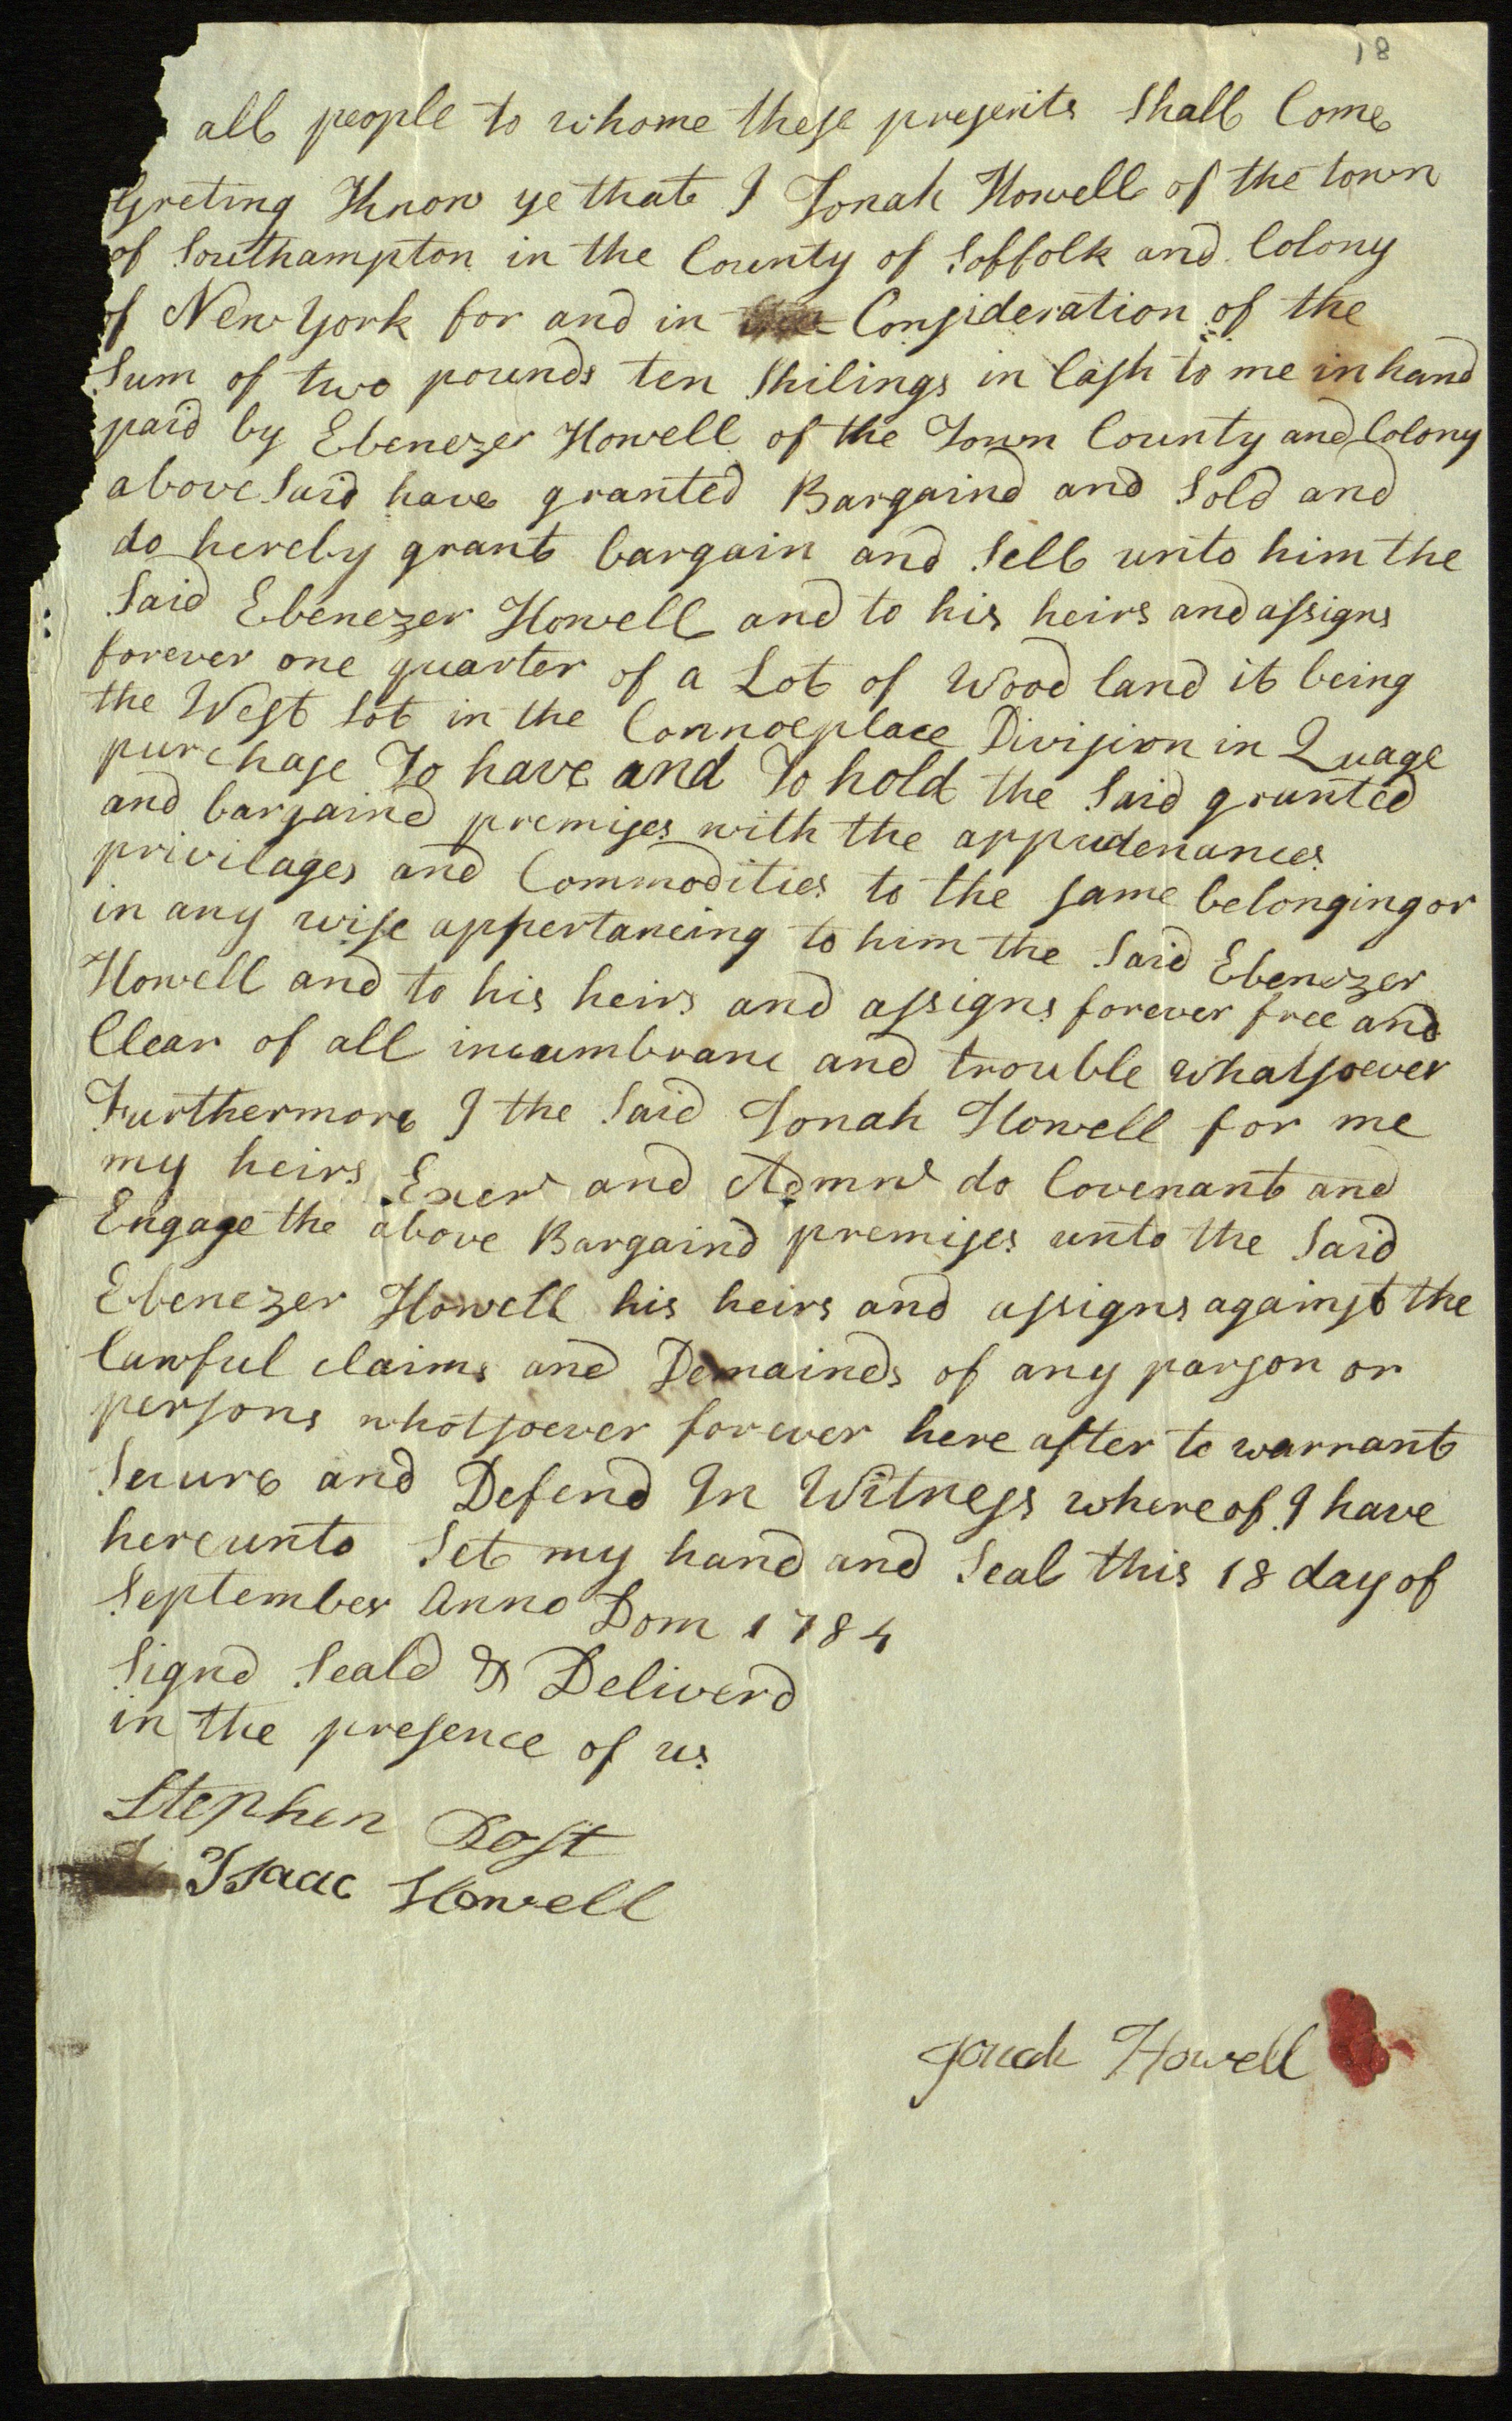 18
all people to whome these presents Shall Come
Greting Know ye that I Jonah Howell of the town
of Southampton in the County of Soffolk and Colony
of New York for and in Consideration of the
Sum of two pounds ten Shilings in Cash to me in hand
paid by Ebenezer Howell of the Town County and Colony
above Said have granted Bargaind and Sold and
do hereby grant bargain and Sell unto him the
Said Ebenezer Howell and to his heirs and assigns
forever one quarter of a Lot of Wood land it being
the West Lot in the Connoeplace Division in Quage
purchase To have and To hold the Said granted
and bargaind premises with the appudenances
privilages and Commodities to the same belonging or
in any wise appertaneing to him the Said Ebenezer
Howell and to his heirs and assigns forever free and
Clear of all incumbranc and trouble whatsoever
Furthermore I the Said Jonah Howell for me
my heirs Exers and Admrs do Covenant and
Engage the above Bargaind premises unto the Said
Ebenezer Howell his heirs and assigns against the
Lawful claims and Demainds of any parson or
persons whotsoever forever here after to warrant
Secure and Defend In Witness where of I have
hereunto Set my hand and Seal this 18 day of
September Anno Dom 1784
Signd Seald & Deliverd
in the presence of us
Stephen Post
Isaac Howell
Jonah Howell